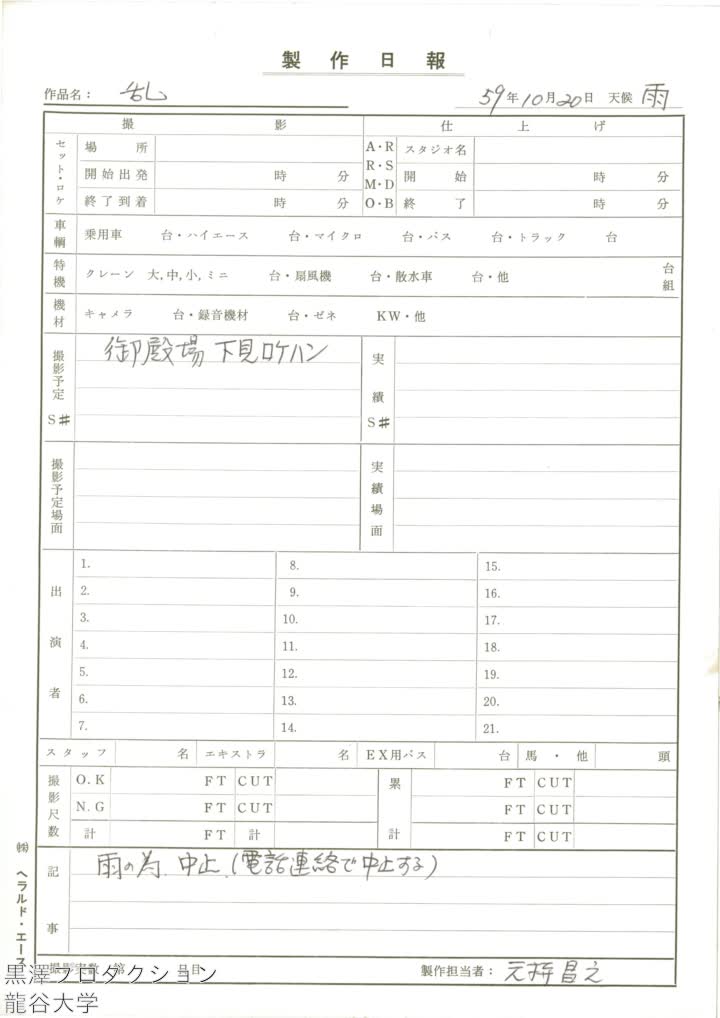 製作日報
作品名： 乱
59年10月20日 天候 雨
撮影 仕上げ
セット・ロケ 場所 A・R R・S M・D O・B スタジオ名
開始出発 時 分 開始 時 分
終了到着 時 分 終了 時 分
車輌 乗用車 台・ハイエース 台・マイクロ 台・バス 台・トラック 台
特機 クレーン 大,中,小,ミニ 台・扇風機 台・散水車 台・他 台組
機材 キャメラ 台・録音機材 台・ゼネ KW・他
撮影予定 S# 御殿場 下見ロケハン 実績 S#
撮影予定場面 実績場面
出演者
1. 8. 15.
2. 9. 16.
3. 10. 17.
4. 11. 18.
5. 12. 19.
6. 13. 20.
7. 14. 21.
スタッフ 名 エキストラ 名 EX用バス 台 馬・他 頭
撮影尺数 O.K FT CUT 累計 FT CUT
N.G FT CUT FT CUT
計 FT 計 FT CUT
記事 雨の為、中止、(電話連絡で中止する)
㈱ ヘラルド・エース
撮影実数 第 日目 製作担当者： 元持昌之
黒澤プロダクション
龍谷大学